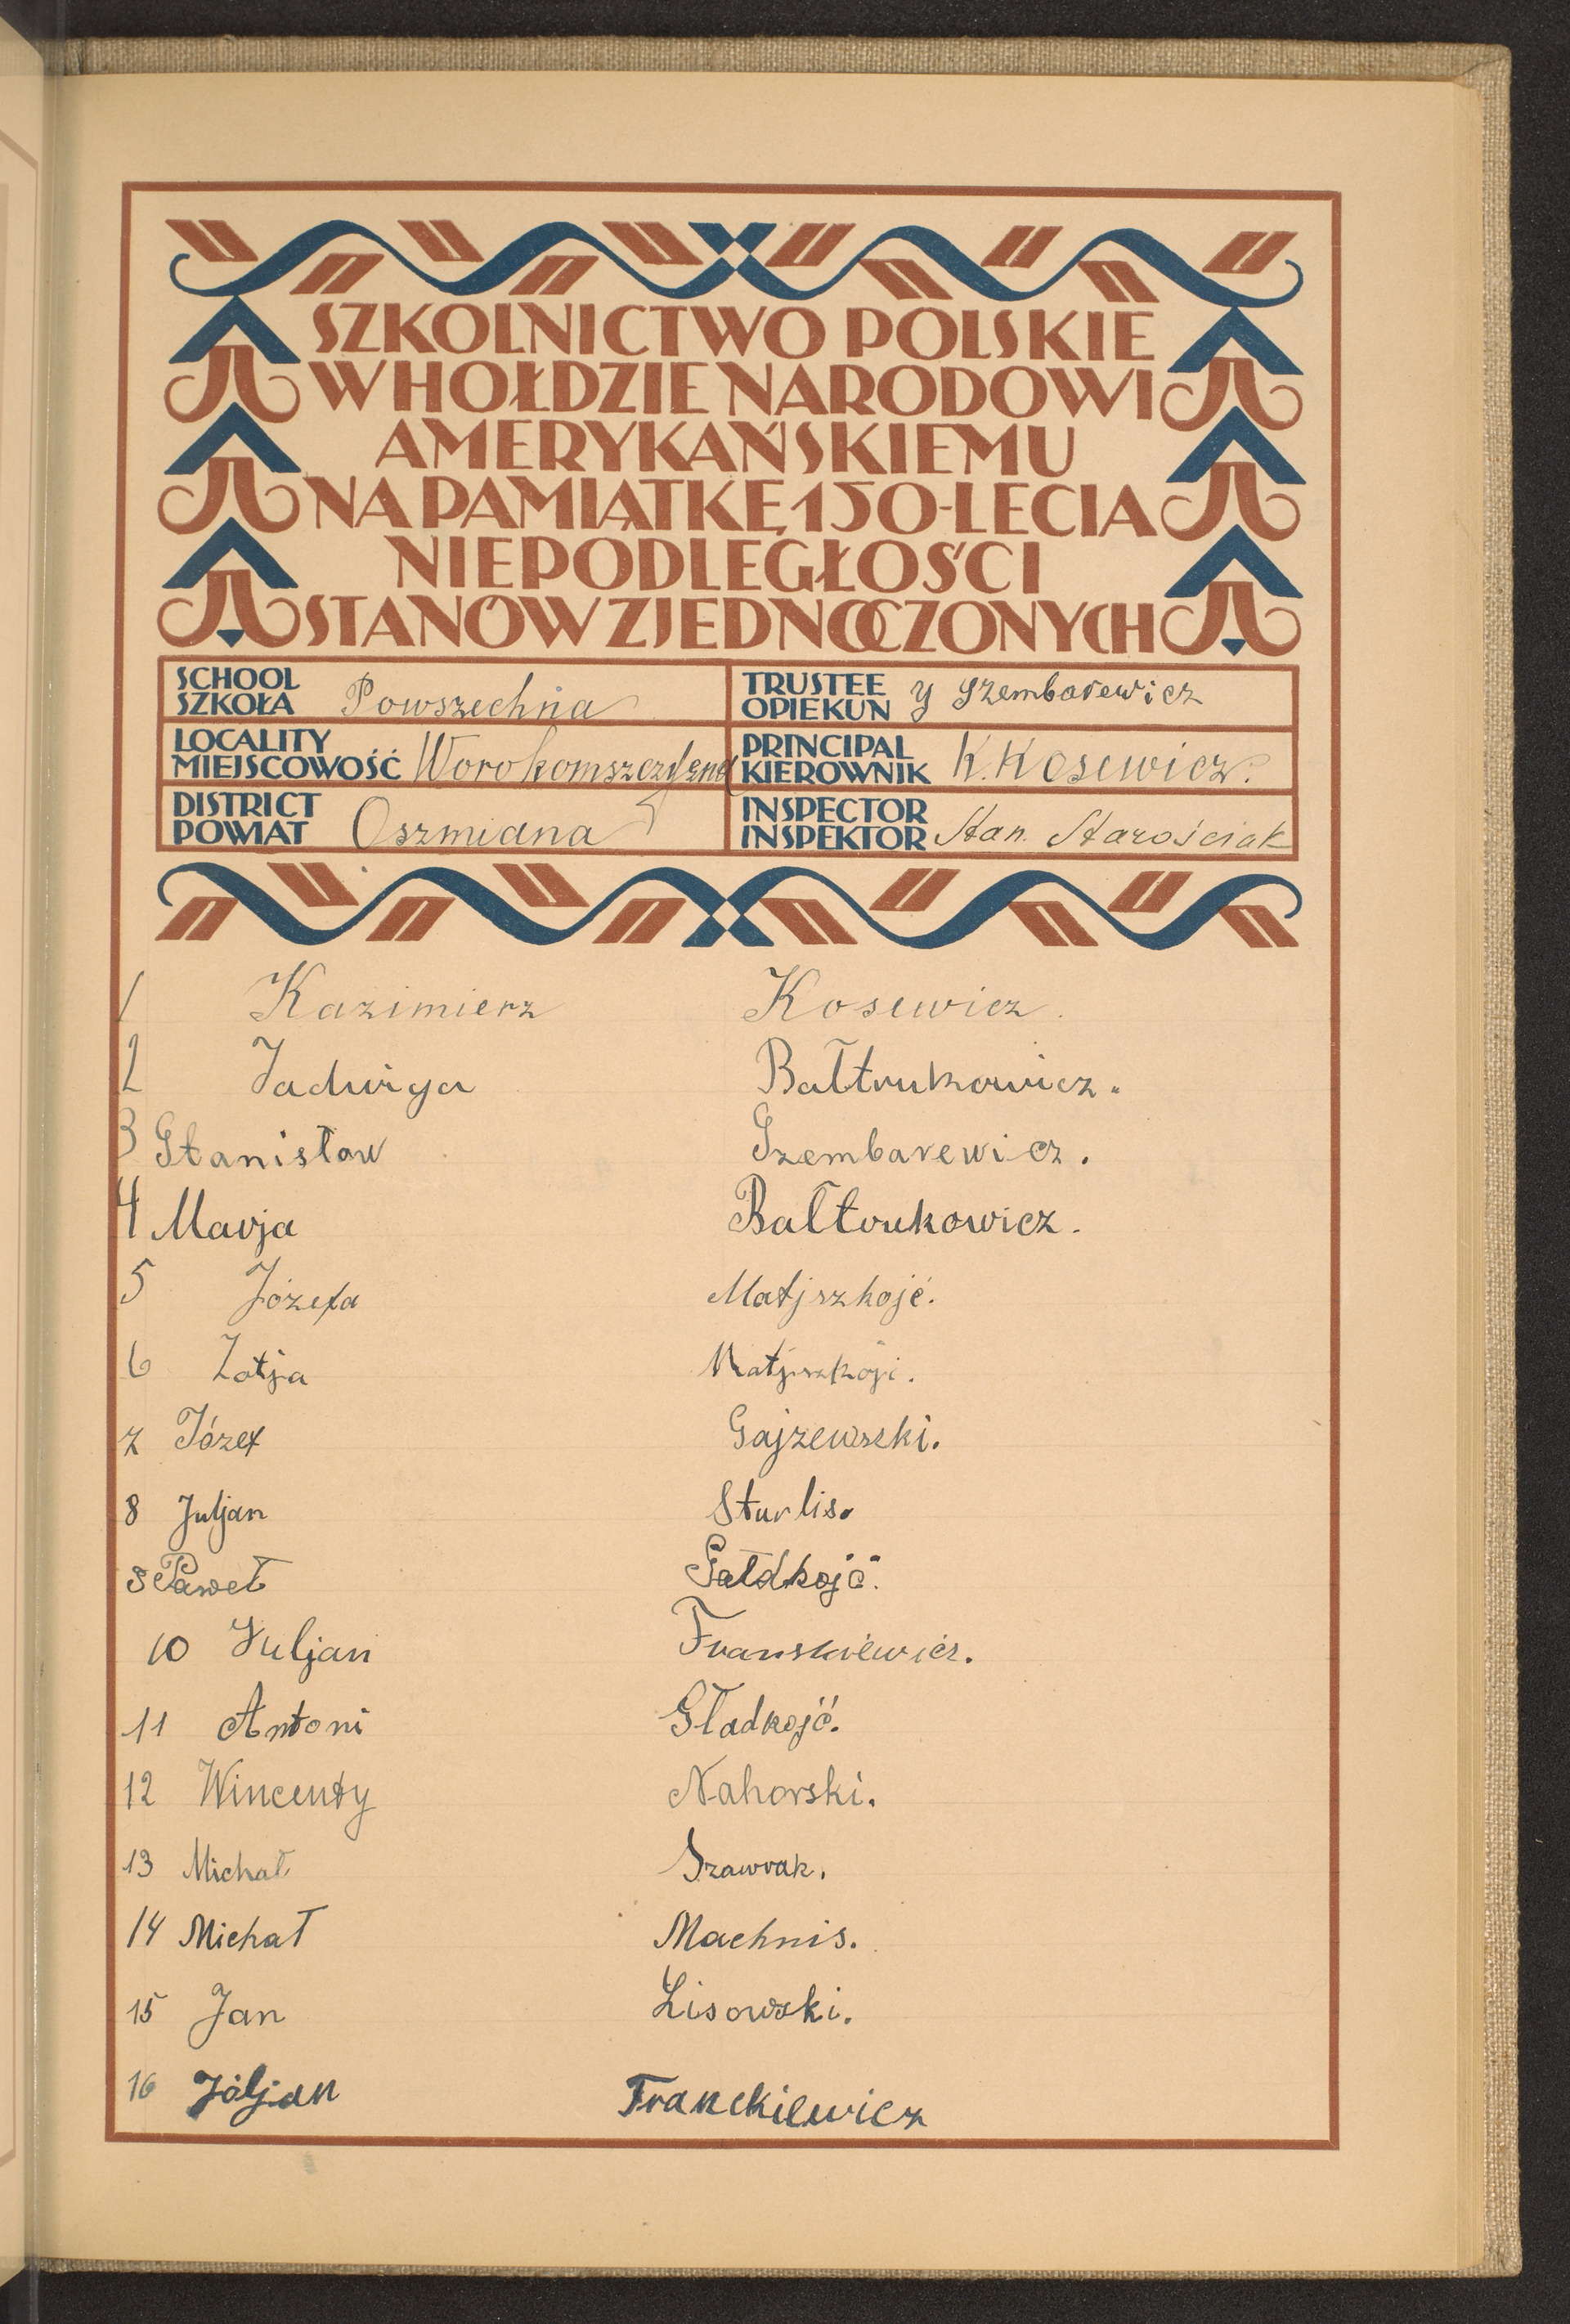 SZKOLNICTWO POLSKIE
W HOŁDZIE NARODOWI
AMERYKAŃSKIEMU
NA PAMIĄTKĘ 150-LECIA
NIEPODLEGŁOŚCI
STANÓW ZJEDNOCZONYCH
SCHOOL
SZKOŁA Powszechna
TRUSTEE
OPIEKUN Szembarewicz
LOCALITY
MIEJSCOWOŚĆ
PRINCIPAL
KIEROWNIK K. Kosewicz.
DISTRICT
POWIAT Oszmiana
INSPECTOR
INSPEKTOR Stan. Starościak
1 Kazimierz Kosewicz.
2 Jadwiga Bałtrukowicz.
3 Stanisław Szembarewicz.
4 Marja Bałtrukowicz.
5 Józefa Matjszkojć.
6 Zofja
7 Józef Gajzewski.
8 Juljan Sturlis.
9 Paweł Gałdkojć.
10 Juljan
11 Antoni Gładkojć.
12 Wincenty Nahorski.
13 Michał Szawrak.
14 Michał Machnis.
15 Jan Lisowski.
16 Jóljan Franckiewicz